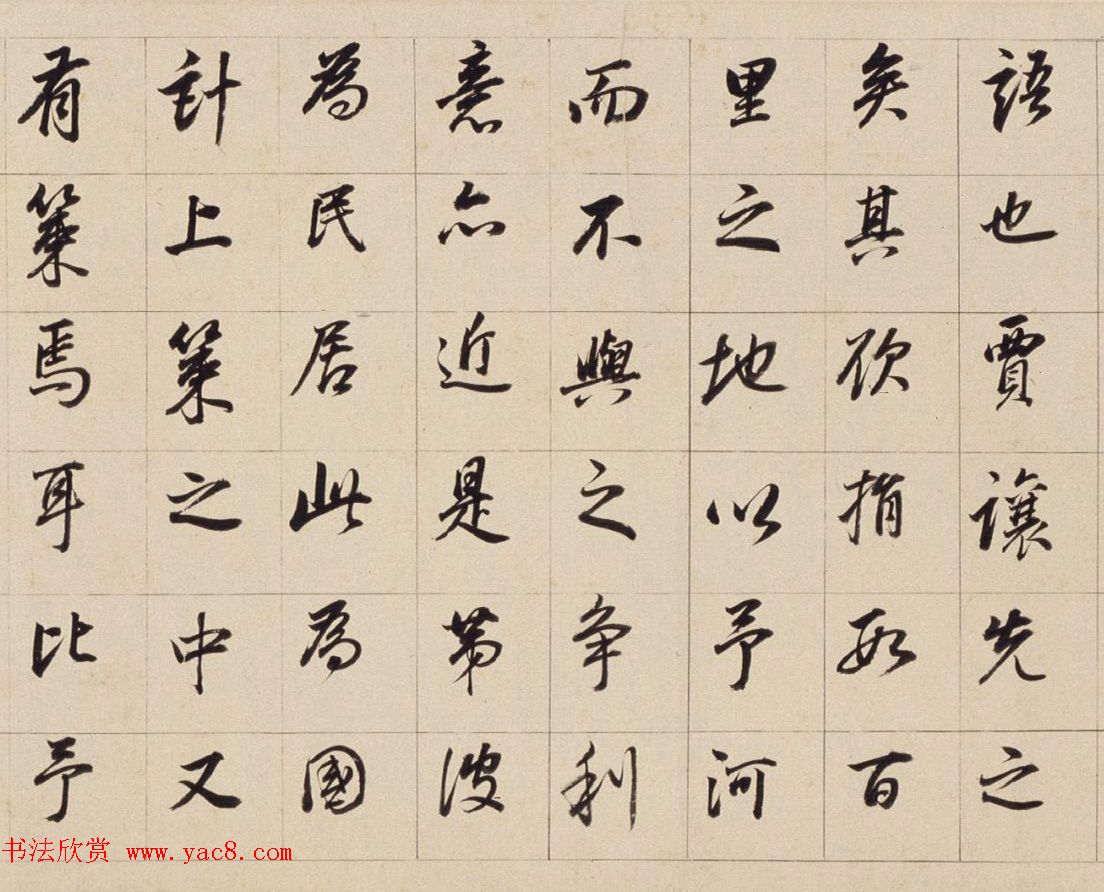 語也賈讓先之
矣其欲捐數百
里之地以予河
而不與之争利
意亦近是第彼
為民居此為國
計上策之中又
有策焉耳比予
书法欣赏 www.yac8.com